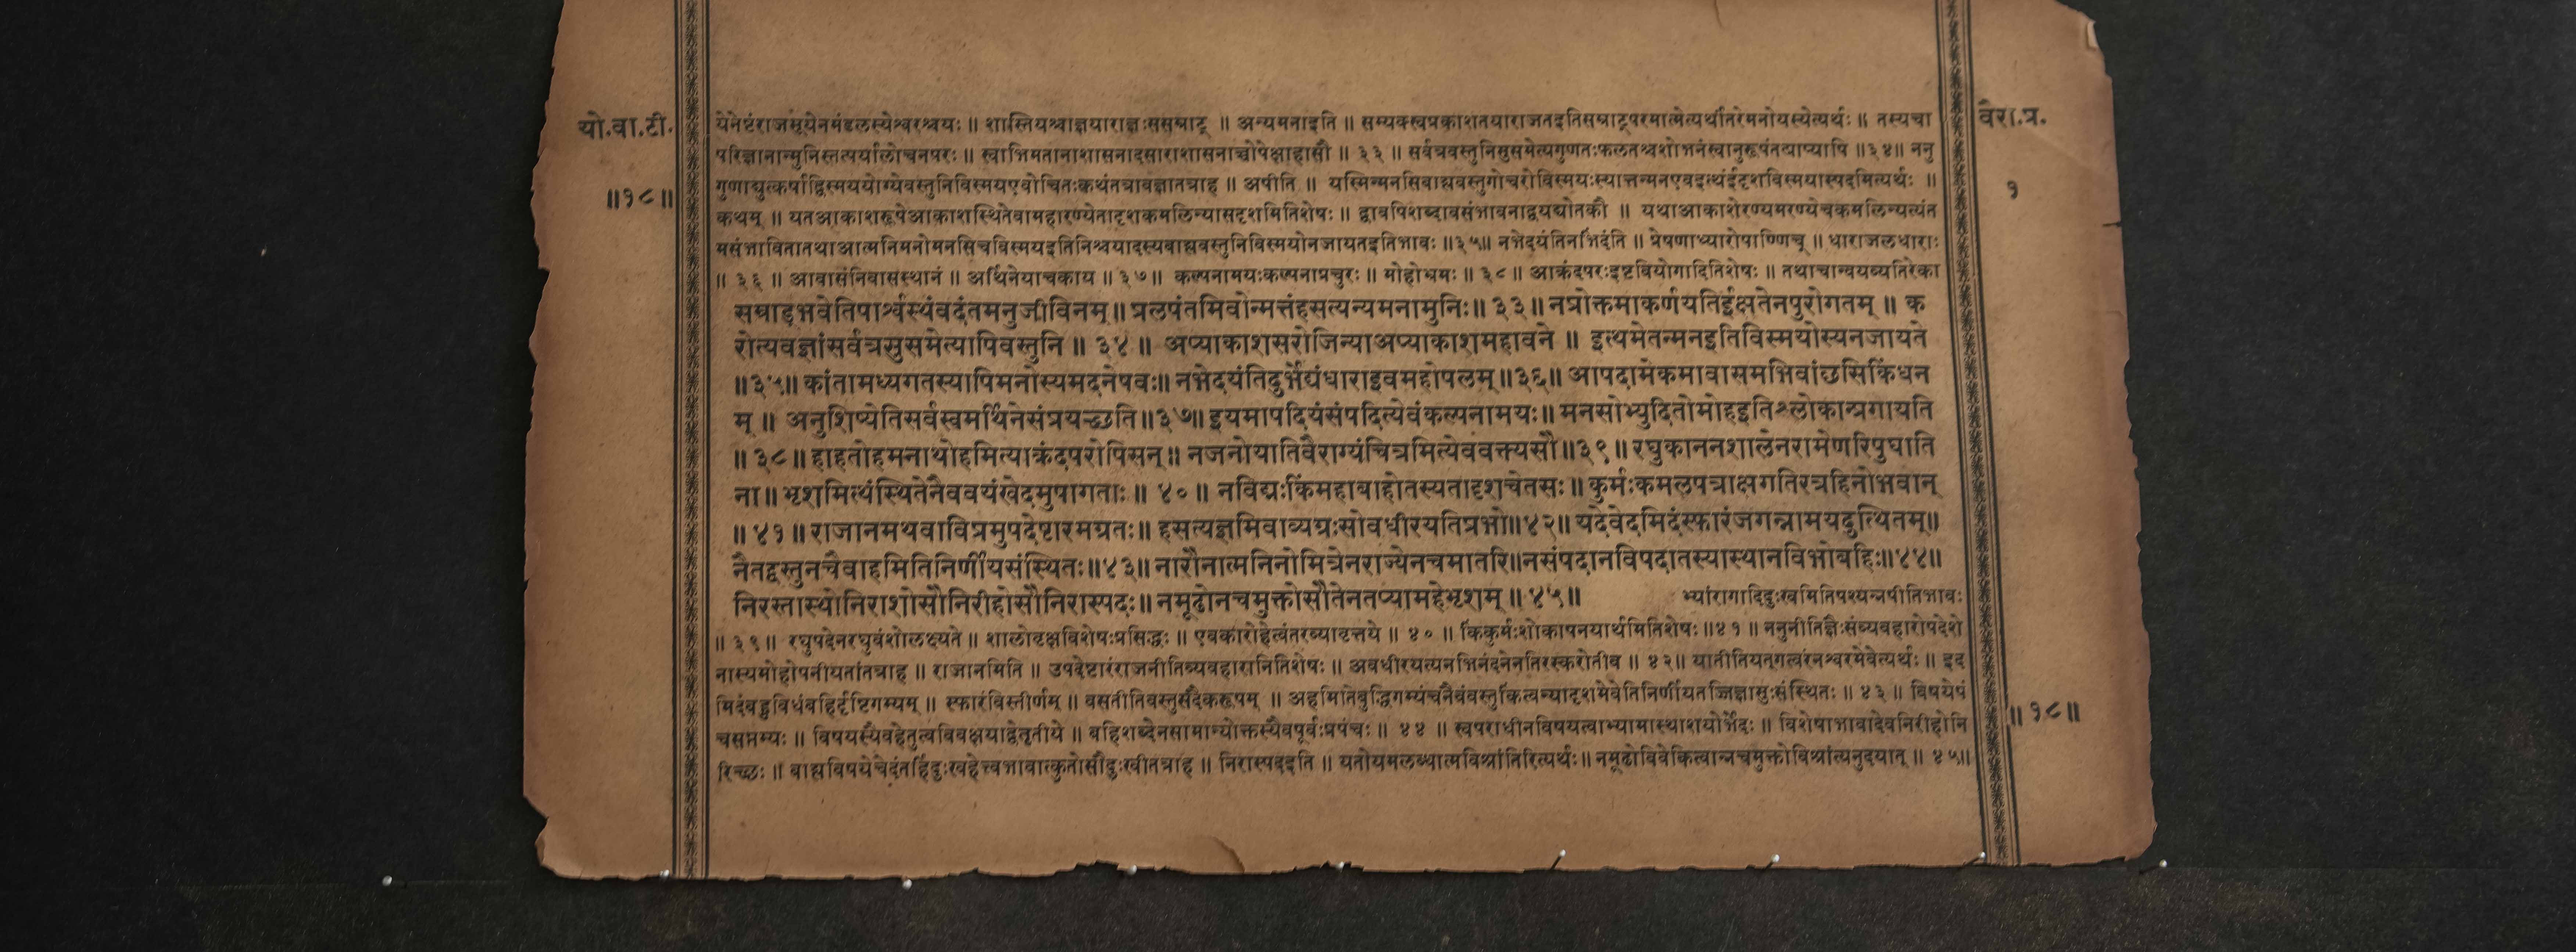 यो.वा.टी.
॥१८॥
येनेष्टंराजसूयेनमंडलस्येश्वरश्चयः ॥ शास्तियश्चाज्ञयाराज्ञःससम्राट् ॥ अन्यमनाइति ॥ सम्यक्स्वप्रकाशतयाराजतइतिसम्राट्परमात्मेत्यर्थांतरेमनोयस्येत्यर्थः ॥ तस्यचा
परिज्ञानान्मुनिस्तत्पर्यालोचनपरः ॥ स्वाभिमतानाशासनादसाराशासनाच्चोपेक्षाहासौ ॥ ३३ ॥ सर्वत्रवस्तुनिसुसमेत्यगुणतःफलतश्चशोभनंस्वानुरूपंतत्प्राप्यापि ॥३४॥ ननु
गुणाद्युत्कर्षाद्विस्मययोग्येवस्तुनिविस्मयएवोचितःकथंतत्रावज्ञातत्राह ॥ अपीति ॥ यस्मिन्मनसिबाह्यवस्तुगोचरोविस्मयःस्यात्तन्मनएवइत्थंईदृशविस्मयास्पदमित्यर्थः ॥
कथम् ॥ यतआकाशरूपेआकाशस्थितेवामहारण्येतादृशकमलिन्यासदृशमितिशेषः ॥ द्वावपिशब्दावसंभावनाद्वयद्योतकौ ॥ यथाआकाशेरण्यमरण्येचकमलिन्यत्यंत
मसंभावितातथाआत्मनिमनोमनसिचविस्मयइतिनिश्चयादस्यबाह्यवस्तुनिविस्मयोनजायतइतिभावः ॥३५॥ नभेदयंतिनभिंदंति ॥ प्रेषणाध्यारोपाण्णिच् ॥ धाराजलधाराः
॥ ३६ ॥ आवासंनिवासस्थानं ॥ अर्थिनेयाचकाय ॥ ३७॥ कल्पनामयःकल्पनाप्रचुरः ॥ मोहोभ्रमः ॥ ३८ ॥ आक्रंदपरःइष्टवियोगादितिशेषः ॥ तथाचान्वयव्यतिरेका
सम्राड्भवेतिपार्श्वस्थंवदंतमनुजीविनम् ॥ प्रलपंतमिवोन्मत्तंहसत्यन्यमनामुनिः॥ ३३॥ नप्रोक्तमाकर्णयतिईक्षतेनपुरोगतम् ॥ क
रोत्यवज्ञांसर्वत्रसुसमेत्यापिवस्तुनि ॥ ३४ ॥ अप्याकाशसरोजिन्याअप्याकाशमहावने ॥ इत्थमेतन्मनइतिविस्मयोस्यनजायते
॥३५॥ कांतामध्यगतस्यापिमनोस्यमदनेषवः॥ नभेदयंतिदुर्भेद्यंधाराइवमहोपलम् ॥३६॥ आपदामेकमावासमभिवांछसिकिंधन
म् ॥ अनुशिष्येतिसर्वस्वमर्थिनेसंप्रयच्छति॥३७॥ इयमापदियंसंपदित्येवंकल्पनामयः॥ मनसोभ्युदितोमोहइतिश्लोकान्प्रगायति
॥ ३८ ॥ हाहतोहमनाथोहमित्याक्रंदपरोपिसन् ॥ नजनोयातिवैराग्यंचित्रमित्येववक्त्यसौ॥३९॥ रघुकाननशालेनरामेणरिपुघाति
ना ॥ भृशमित्थंस्थितेनैववयंखेदमुपागताः ॥ ४० ॥ नविद्मःकिंमहाबाहोतस्यतादृशचेतसः ॥ कुर्मःकमलपत्राक्षगतिरत्रहिनोभवान्
॥ ४१ ॥ राजानमथवाविप्रमुपदेष्टारमग्रतः॥ हसत्यज्ञमिवाव्यग्रःसोवधीरयतिप्रभो॥४२॥ यदेवेदमिदंस्फारंजगन्नामयदुत्थितम्॥
नैतद्वस्तुनचैवाहमितिनिर्णीयसंस्थितः॥४३॥ नारौनात्मनिनोमित्रेनराज्येनचमातरि॥नसंपदानविपदातस्यास्थानविभोबहिः॥४४॥
निरस्तास्थोनिराशोसौनिरीहोसौनिरास्पदः॥ नमूढोनचमुक्तोसौतेनतप्यामहेभृशम् ॥ ४५॥
भ्यांरागादिदुःखमितिपश्यन्नपीतिभावः
॥ ३९ ॥ रघुपदेनरघुवंशोलक्ष्यते ॥ शालोवृक्षविशेषःप्रसिद्धः ॥ एवकारोहेत्वंतरव्यावृत्तये ॥ ४० ॥ किंकुर्मःशोकापनयार्थमितिशेषः ॥४१ ॥ ननुनीतिज्ञैःसंव्यवहारोपदेशे
नास्यमोहोपनीयतांतत्राह ॥ राजानमिति ॥ उपदेष्टारंराजनीतिव्यवहारानितिशेषः ॥ अवधीरयत्यनभिनंदनेनतिरस्करोतीव ॥ ४२॥ यातीतियत्गत्वरंनश्वरमेवेत्यर्थः ॥ इद
मिदंबहुविधंबहिर्दृष्टिगम्यम् ॥ स्फारंविस्तीर्णम् ॥ वसतीतिवस्तुसदेकरूपम् ॥ अहमितिबुद्धिगम्यंचनैवंवस्तुकिंत्वन्यादृशमेवेतिनिर्णीयतज्जिज्ञासुःसंस्थितः ॥ ४३ ॥ विषयेषं
चसप्तम्यः ॥ विषयस्यैवहेतुत्वविवक्षयाद्वेतृतीये ॥ बहिशब्देनसामान्योक्तस्यैवपूर्वःप्रपंचः ॥ ४४ ॥ स्वपराधीनविषयत्वाभ्यामास्थाशयोर्भेदः ॥ विशेषाभावादेवनिरीहोनि
रिच्छः ॥ बाह्यविषयेचेदंतर्हिदुःखहेत्वभावात्कुतोसौदुःखीतत्राह ॥ निरास्पदइति ॥ यतोयमलब्धात्मविश्रांतिरित्यर्थः॥ नमूढोविवेकित्वान्नचमुक्तोविश्रांत्यनुदयात् ॥ ४५॥
वैरा.प्र.
१
॥ १८॥